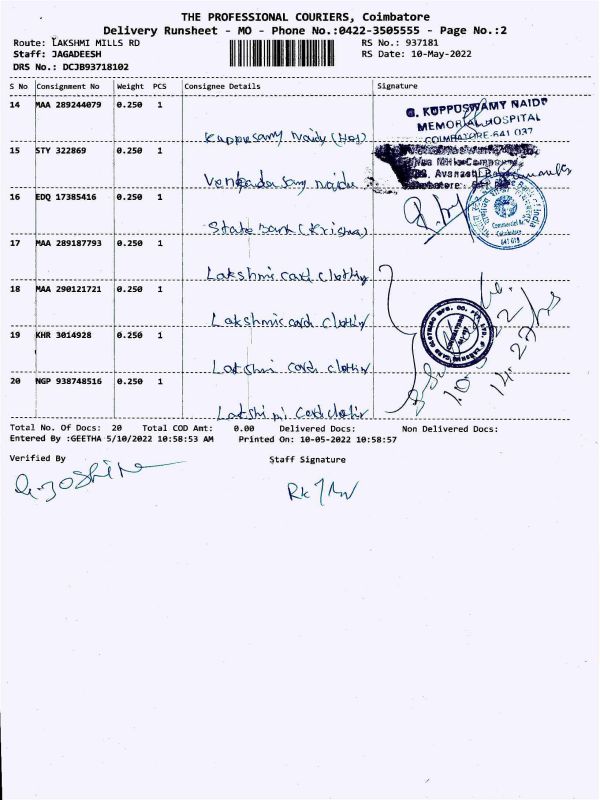 THE PROFESSIONAL COURIERS, Coimbatore
Delivery Runsheet - MO - Phone No.:0422-3505555 - Page No.:2
Route: LAKSHMI MILLS RD RS No.: 937181
Staff: JAGADEESH RS Date: 10-May-2022
DRS No.: DCJB93718102
S No Consignment No Weight PCS Consignee Details Signature
14 MAA 289244079 0.250 1
Kuppusamy Naidu (Hos)
G. KUPPUSWAMY NAIDU
MEMORIAL HOSPITAL
COIMBATORE-641 037
15 STY 322869 0.250 1
Venkadasamy naidu
16 EDQ 17385416 0.250 1
State Bank (Krishna)
17 MAA 289187793 0.250 1
Lakshmi card clothing
18 MAA 290121721 0.250 1
Lakshmi card clothin
19 KHR 3014928 0.250 1
Lakshmi card clothin
20 NGP 938748516 0.250 1
Lakshmi card clothin
Total No. Of Docs: 20 Total COD Amt: 0.00 Delivered Docs: Non Delivered Docs:
Entered By :GEETHA 5/10/2022 10:58:53 AM Printed On: 10-05-2022 10:58:57
Verified By Staff Signature